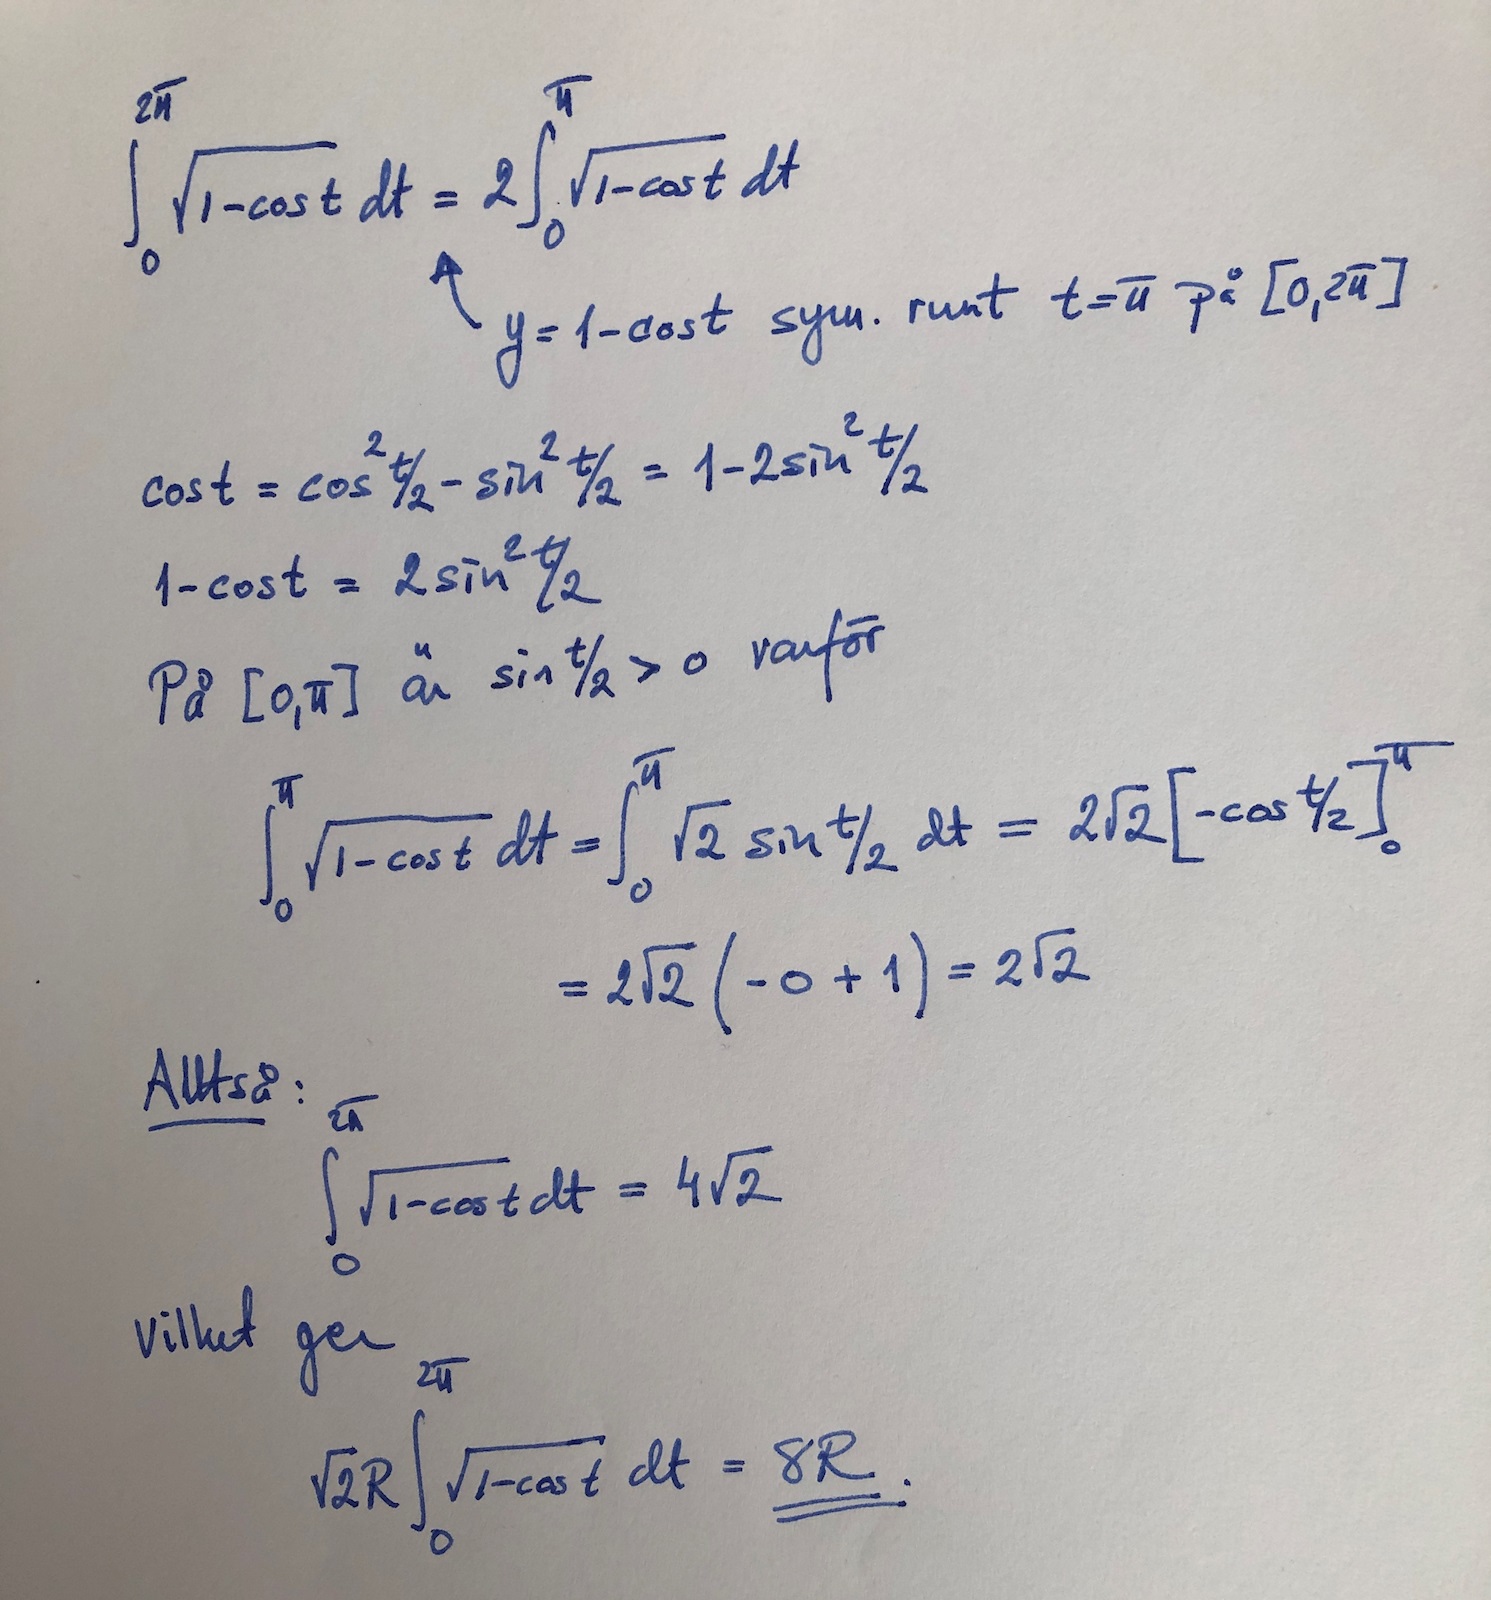 ∫₀^{2π} √(1-cos t) dt = 2∫₀^{π} √(1-cos t) dt
y = 1-cos t sym. runt t=π på [0,2π]
cos t = cos² t/2 - sin² t/2 = 1-2sin² t/2
1-cos t = 2 sin² t/2
På [0,π] är sin t/2 > 0 varför
∫₀^{π} √(1-cos t) dt = ∫₀^{π} √2 sin t/2 dt = 2√2 [-cos t/2]₀^{π}
= 2√2 (-0+1) = 2√2
Alltså:
∫₀^{2π} √(1-cos t) dt = 4√2
vilket ger
√2R ∫₀^{2π} √(1-cos t) dt = 8R.